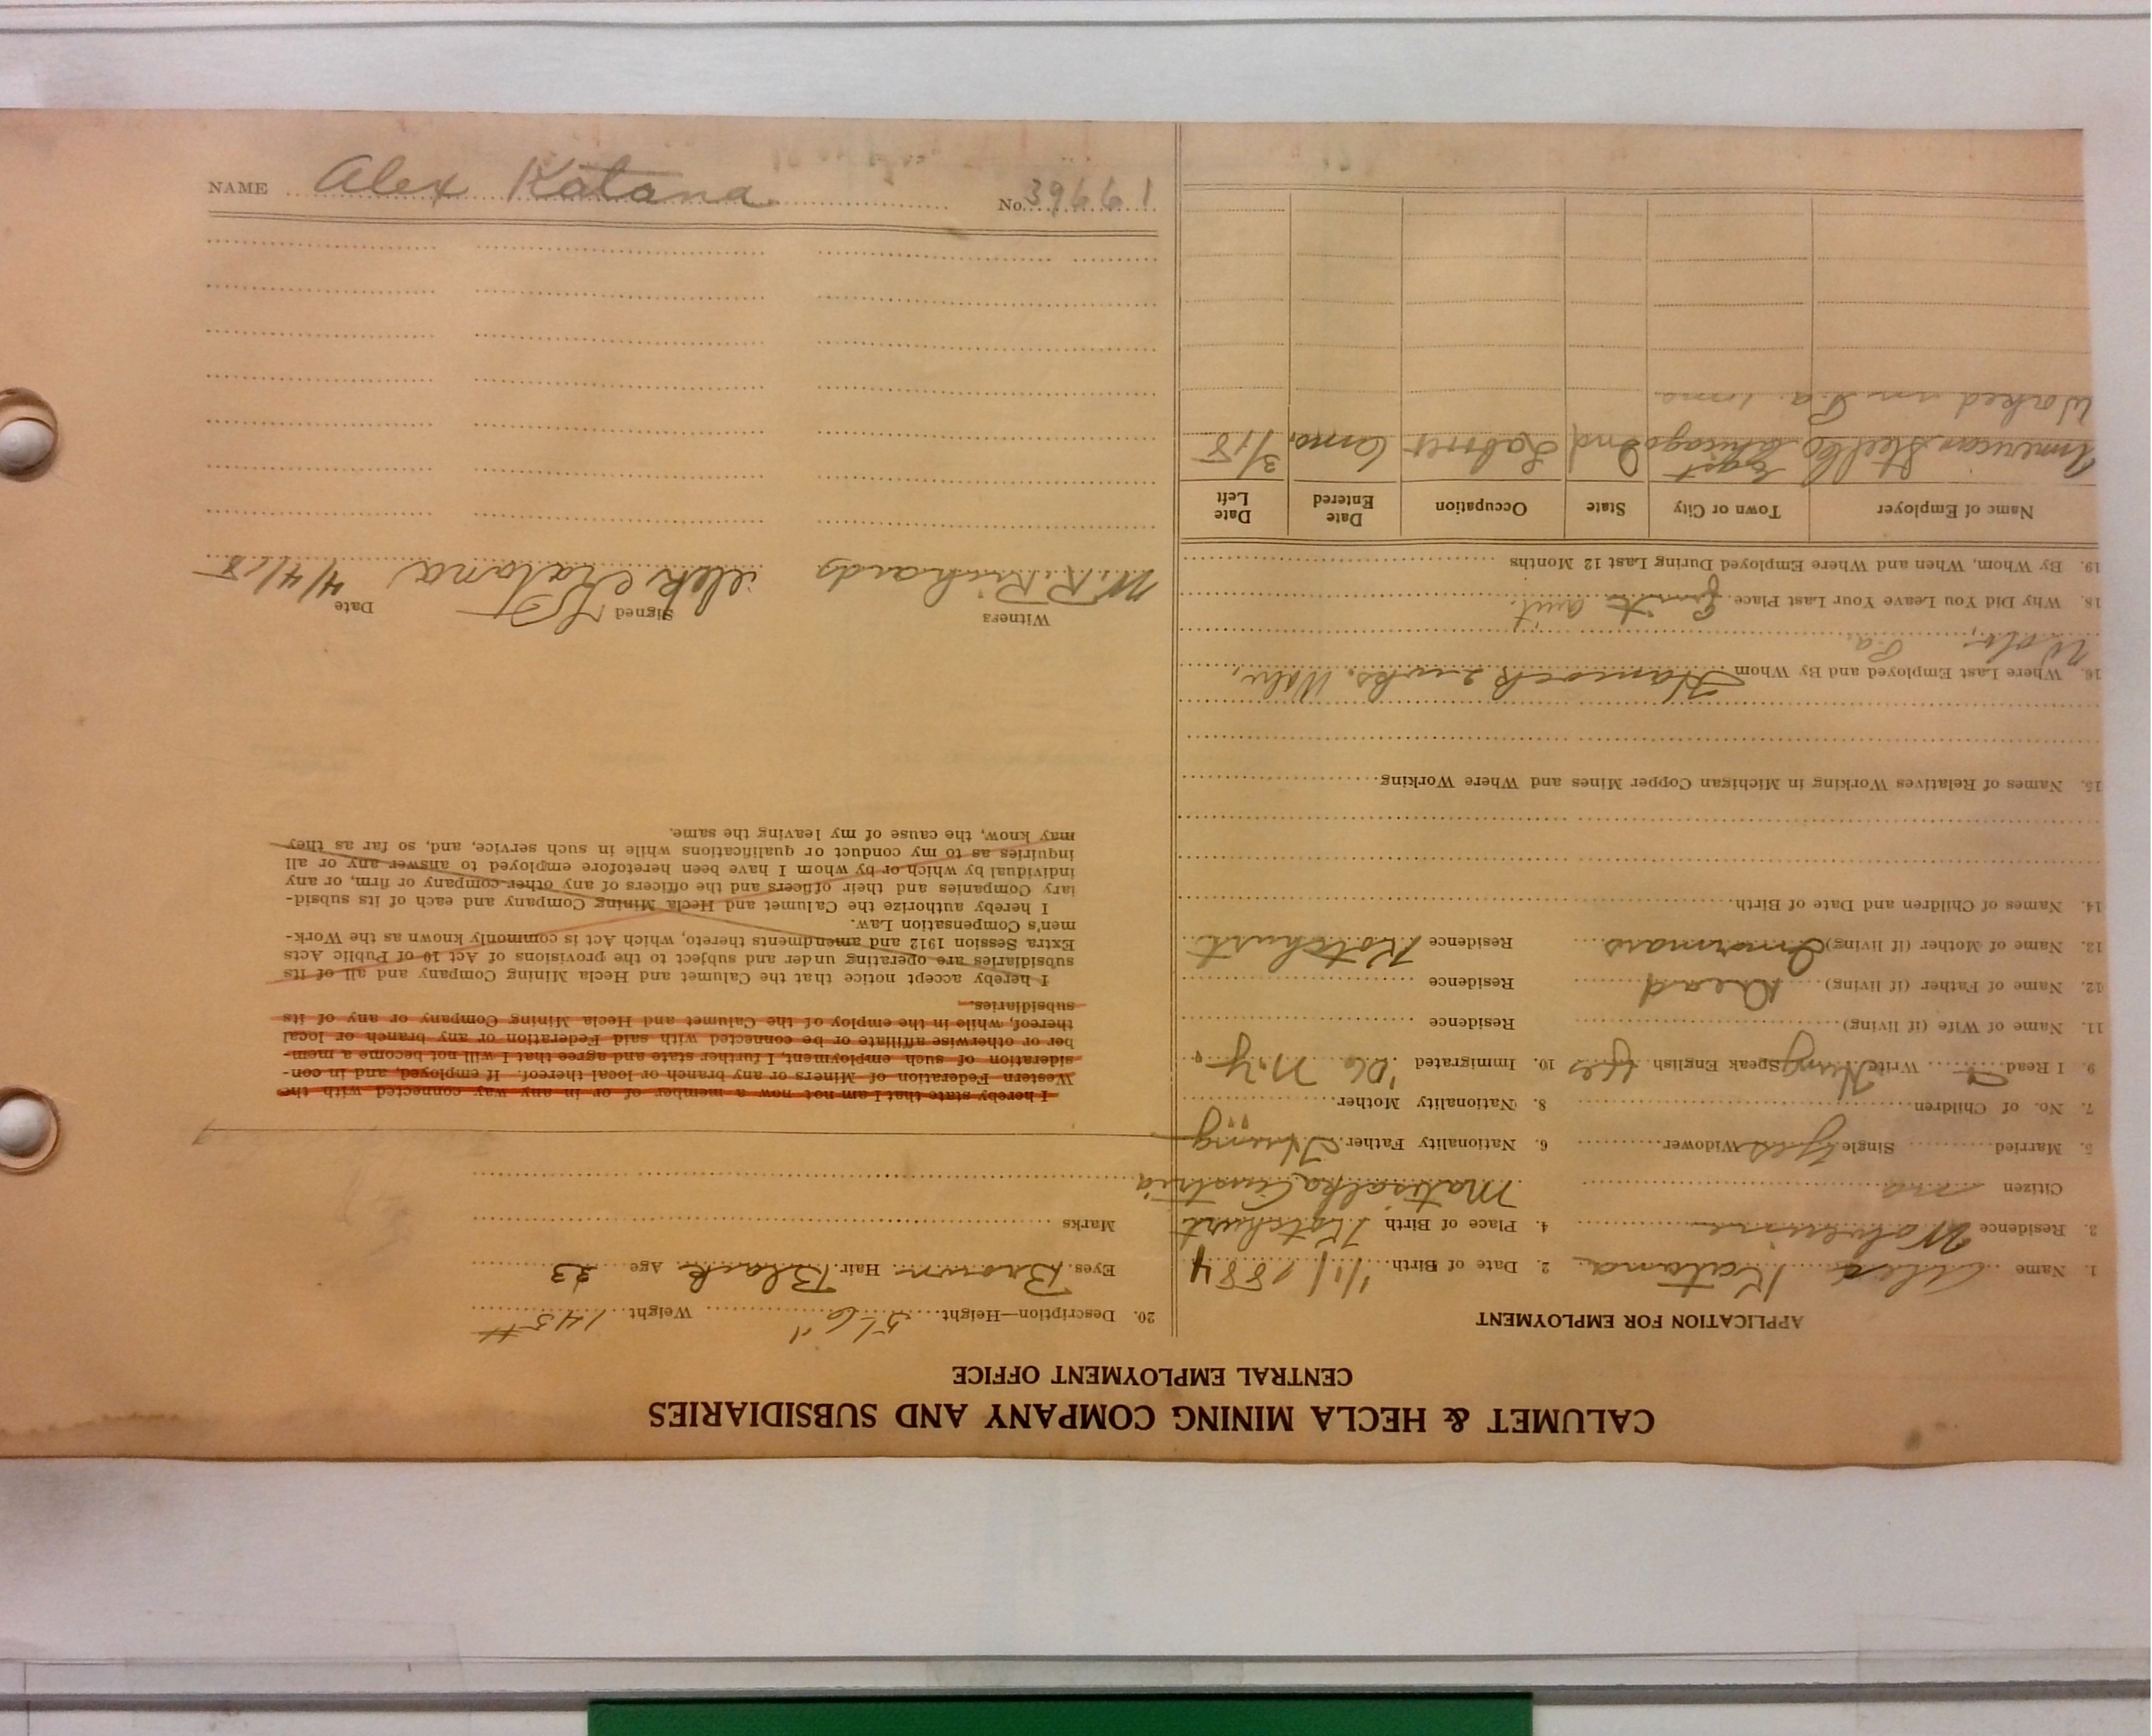 CALUMET & HECLA MINING COMPANY AND SUBSIDIARIES
CENTRAL EMPLOYMENT OFFICE
APPLICATION FOR EMPLOYMENT
1. Name Alex Katana 2. Date of Birth 1/1/1884
3. Residence Wolverine 4. Place of Birth Kotchurt
Citizen no Austria
5. Married Single yes Widower 6. Nationality Father Hung
7. No. of Children 8. Nationality Mother "
9. I Read Write Hung Speak English yes 10. Immigrated '06 N.Y.
11. Name of Wife (if living) Residence
12. Name of Father (if living) Dead Residence
13. Name of Mother (if living) Residence Kotchurt
14. Names of Children and Date of Birth
15. Names of Relatives Working in Michigan Copper Mines and Where Working
16. Where Last Employed and By Whom
Pa
18. Why Did You Leave Your Last Place quit.
19. By Whom, When and Where Employed During Last 12 Months
Name of Employer Town or City State Occupation Date Entered Date Left
American Steel Co East Chicago Ind Laborer 6 mo. 3/18
Worked in Pa. 1 mo
20. Description—Height 5' 6" Weight 145 #
Eyes Brown Hair Black Age 33
Marks
I hereby state that I am not now a member of or in any way connected with the
Western Federation of Miners or any branch or local thereof. If employed, and in con-
sideration of such employment, I further state and agree that I will not become a mem-
ber or otherwise affiliate or be connected with said Federation or any branch or local
thereof, while in the employ of the Calumet and Hecla Mining Company or any of its
subsidiaries.
I hereby accept notice that the Calumet and Hecla Mining Company and all of its
subsidiaries are operating under and subject to the provisions of Act 10 of Public Acts
Extra Session 1912 and amendments thereto, which Act is commonly known as the Work-
men's Compensation Law.
I hereby authorize the Calumet and Hecla Mining Company and each of its subsid-
iary Companies and their officers and the officers of any other company or firm, or any
individual by which or by whom I have been heretofore employed to answer any or all
inquiries as to my conduct or qualifications while in such service, and, so far as they
may know, the cause of my leaving the same.
Witness Signed Date
M. R. Richards Alek Katana 4/4/18
NAME Alex Katana No. 39661